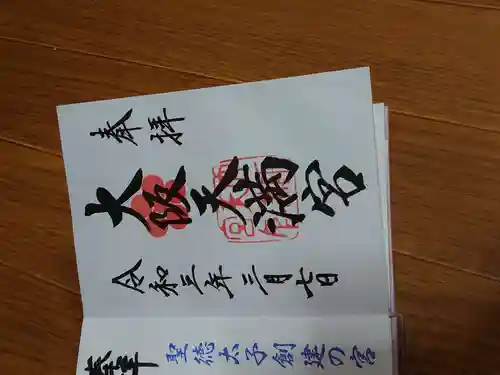 奉拝
大阪天満宮
令和三年三月七日
聖徳太子創建の宮
奉拝